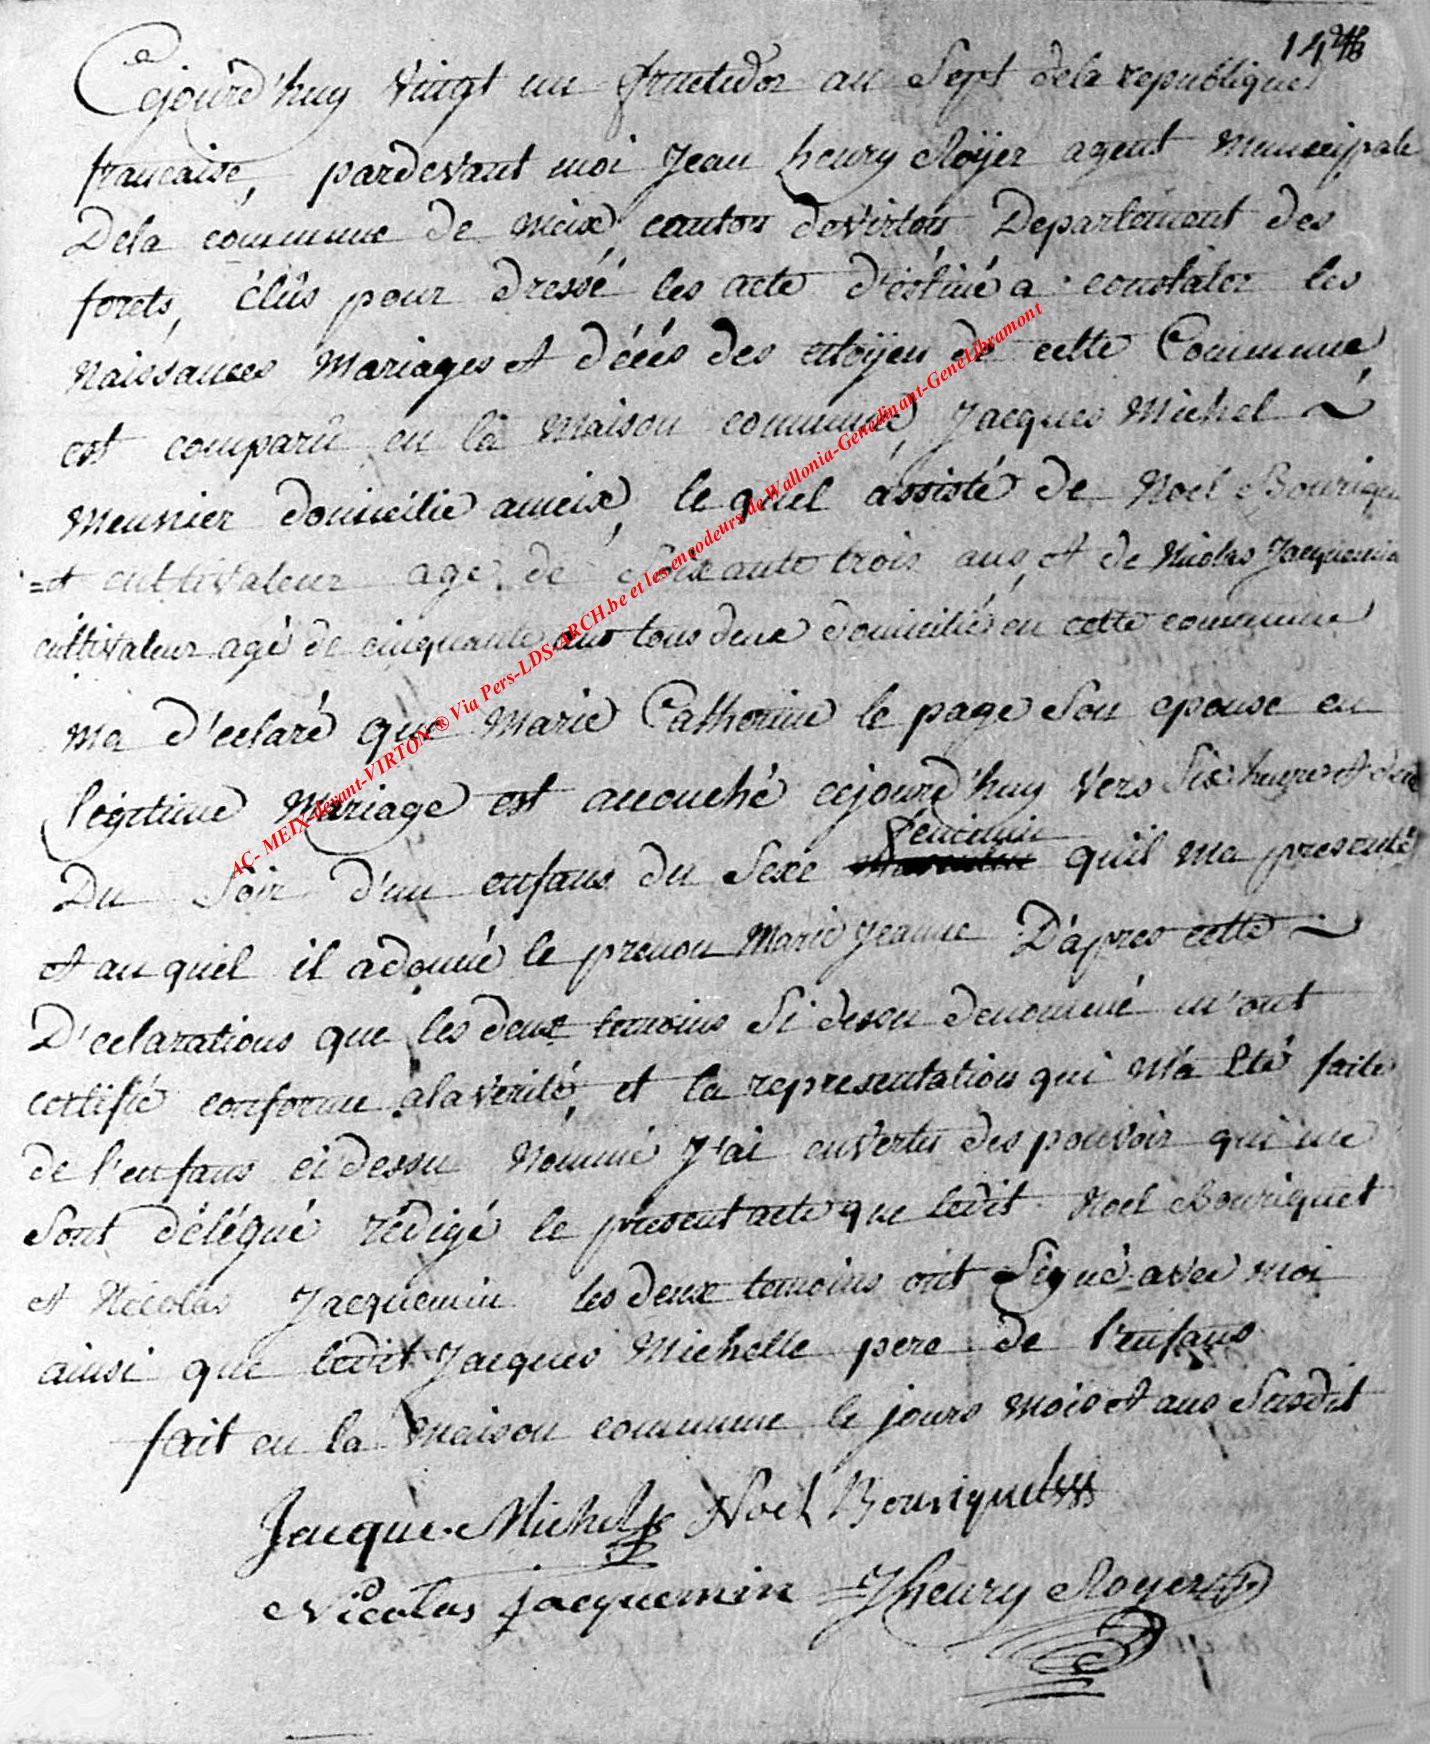 14
Cejourd'huy vingt un fructidor an Sept dela republique
francaise, pardevant moi Jean henry Roÿer agent Municipale
Dela commune de Meix canton de Virton Departement des
forets, élûs pour dressé les acte d'éstiné a constater les
Naissances Mariages et décés des citoÿen de cette Commune
est comparû en la Maison commune, Jacques Michel ~
Meunier domicilié ameix, le quel assisté de Noel Bourique
=et cultivateur agé de Soixante trois ans, et de Nicolas Jacquemin
cultivateur agé de cinquante ans tous deux domicilié en cette commune
Ma d'eclaré que Marie Catherine le page Son epouse en
légitime Mariage est accouché cejourd'huy vers Six heure et demi
Du Soir d'un enfans du Sexe feminin qu'il ma presenté
et au quel il adonné le prenom Marie Jeanne D'apres cette ~
D'eclarations que les deux temoins Si dessu denomé m'ont
certifié conforme alaverité, et la representation qui M'a Eté faite
de l'enfans ci dessu Nommé J'ai envertu des pouvoir qui me
Sont délégué rédigé le présent acte que ledit Noel Bouriquet
et Nicolas Jacquemin les deux temoins ont Signé avec moi
ainsi que ledit Jacques Michelle pere de l'enfans
fait en la Maison commune le jours Mois et ans Susdit
Jacque Michel Noel Bouriquet
Nicolas jacquemin Jhenry Royer
AC- MEIX-devant-VIRTON ® Via Pers-LDS-ARCH.be et les encodeurs de Wallonia-Genedinant-GeneLibramont